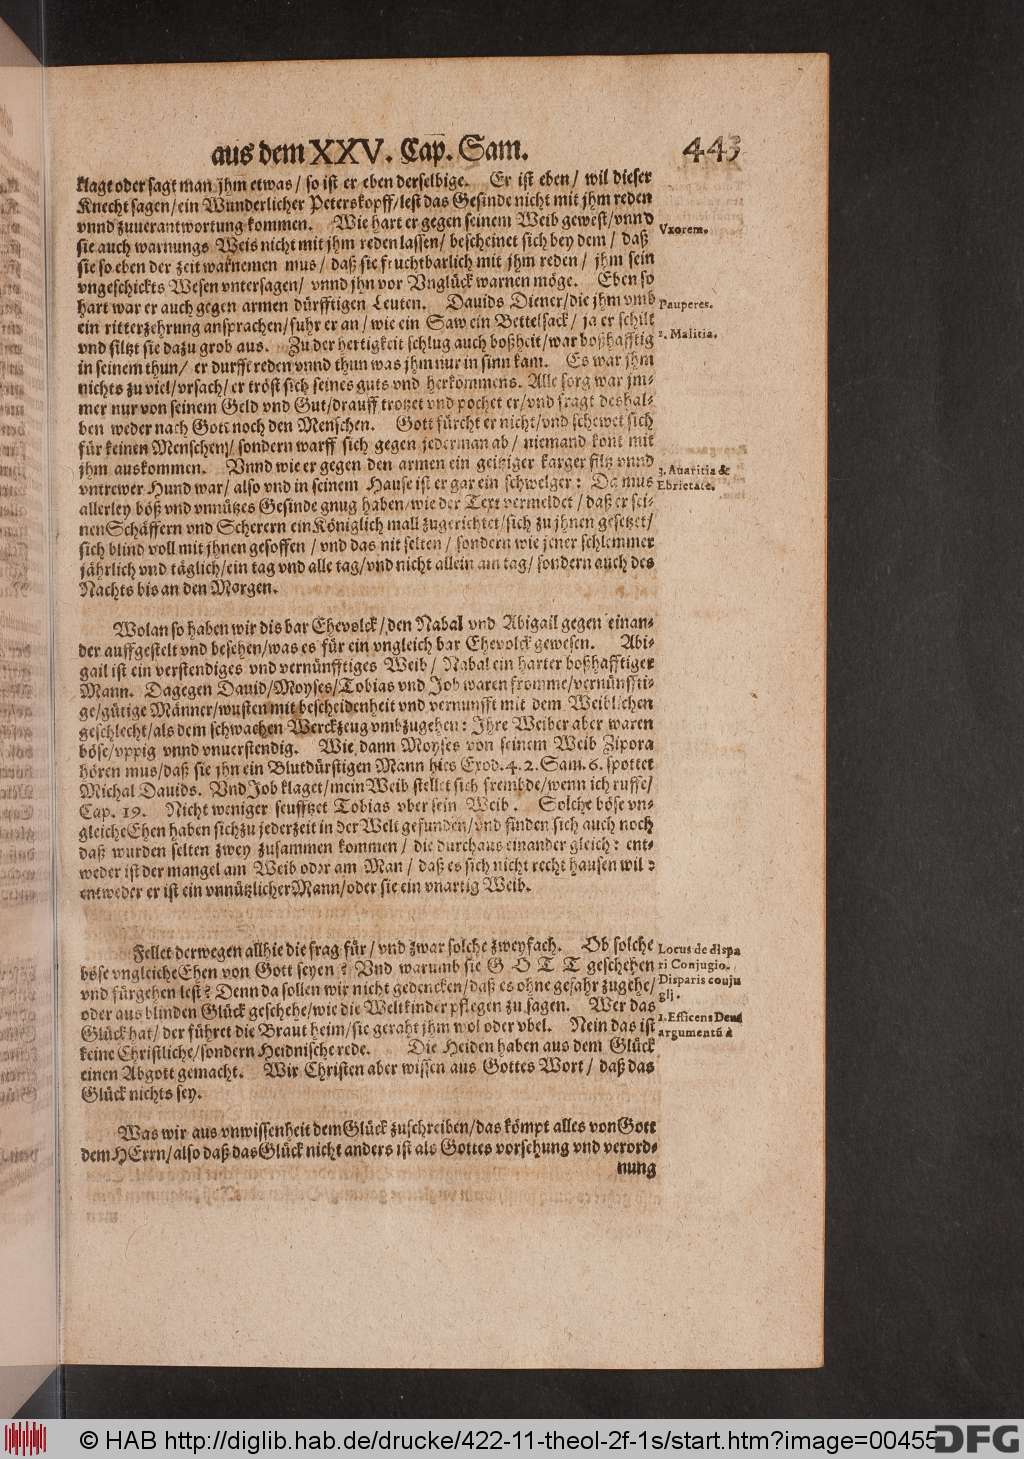 aus dem XXV. Cap. Sam. 443
klagt oder sagt man jhm etwas / so ist er eben derselbige. Er ist eben / wil dieser
Knecht sagen / ein Wunderlicher Peterskopff / lest das Gesinde nicht mit jhm reden
vnnd zuuerantwortung kommen. Wie hart er gegen seinem Weib gewest / vnnd
Vxorem.
sie auch warnungs Weis nicht mit jhm reden lassen / bescheinet sich bey dem / daß
sie so eben der zeit warnemen mus / daß sie fruchtbarlich mit jhm reden / jhm sein
vngeschickts Wesen vntersagen / vnnd jhn vor Vnglück warnen möge. Eben so
hart war er auch gegen armen dürfftigen Leuten. Dauids Diener / die jhm vmb
Pauperes.
ein ritterzehrung ansprachen / fuhr er an / wie ein Saw ein Bettelsack / ja er schilt
vnd filtzt sie dazu grob aus. Zu der hertigkeit schlug auch boßheit / war boßhafftig
2. Malitia.
in seinem thun / er durfft reden vnnd thun was jhm nur in sinn kam. Es war jhm
nichts zu viel / vrsach / er tröst sich seines guts vnd herkommens. Alle sorg war jm-
mer nur von seinem Geld vnd Gut / drauff trotzet vnd pochet er / vnd fragt deshal-
ben weder nach Gott noch den Menschen. Gott fürcht er nicht / vnd schewet sich
für keinen Menschen / sondern warff sich gegen jederman ab / niemand kont mit
jhm auskommen. Vnnd wie er gegen den armen ein geitziger karger filtz vnnd
3. Auaritia &
vntrewer Hund war / also vnd in seinem Hause ist er gar ein schwelger: Da mus
Ebrietate.
allerley böß vnd vnnützes Gesinde gnug haben / wie der Text vermeldet / daß er sei-
nen Schäffern vnd Scherern ein Königlich mall zugerichtet / sich zu jhnen gesetzet /
sich blind voll mit jhnen gesoffen / vnd das nit selten / sondern wie jener schlemmer
jährlich vnd täglich / ein tag vnd alle tag / vnd nicht allein am tag / sondern auch des
Nachts bis an den Morgen.
Wolan so haben wir dis bar Ehevolck / den Nabal vnd Abigail gegen einan-
der auffgestelt vnd besehen / was es für ein vngleich bar Ehevolck gewesen. Abi-
gail ist ein verstendiges vnd vernünfftiges Weib / Nabal ein harter boßhafftiger
Mann. Dagegen Dauid / Moyses / Tobias vnd Job waren fromme / vernünffti-
ge / gütige Männer / wusten mit bescheidenheit vnd vernunfft mit dem Weiblichen
geschlecht / als dem schwachen Werckzeug vmbzugehen: Jhre Weiber aber waren
böse / vppig vnnd vnuerstendig. Wie dann Moyses von seinem Weib Zipora
hören mus / daß sie jhn ein Blutdürstigen Mann hies Exod. 4. 2. Sam. 6. spottet
Michal Dauids. Vnd Job klaget / mein Weib stellet sich frembde / wenn ich ruffe /
Cap. 19. Nicht weniger seufftzet Tobias vber sein Weib. Solche böse vn-
gleiche Ehen haben sich zu jederzeit in der Welt gefunden / vnd finden sich auch noch
daß wurden selten zwey zusammen kommen / die durchaus einander gleich: ent-
weder ist der mangel am Weib oder am Man / daß es sich nicht recht hausen wil:
entweder er ist ein vnnützlicher Mann / oder sie ein vnartig Weib.
Fellet derwegen allhie die frag für / vnd zwar solche zweyfach. Ob solche
Locus de dispa
böse vngleiche Ehen von Gott seyen? Vnd warumb sie GOTT geschehen
ri Conjugio.
vnd fürgehen lest? Denn da sollen wir nicht gedencken / daß es ohne gefahr zugehe /
Disparis conju
gij.
oder aus blinden Glück geschehe / wie die Weltkinder pflegen zu sagen. Wer das
1. Efficens Deus
Glück hat / der führet die Braut heim / sie geraht jhm wol oder vbel. Nein das ist
argumentū à
keine Christliche / sondern Heidnische rede. Die Heiden haben aus dem Glück
einen Abgott gemacht. Wir Christen aber wissen aus Gottes Wort / daß das
Glück nichts sey.
Was wir aus vnwissenheit dem Glück zuschreiben / das kömpt alles von Gott
dem HErrn / also daß das Glück nicht anders ist als Gottes vorsehung vnd verord-
nung
© HAB http://diglib.hab.de/drucke/422-11-theol-2f-1s/start.htm?image=00455
DFG